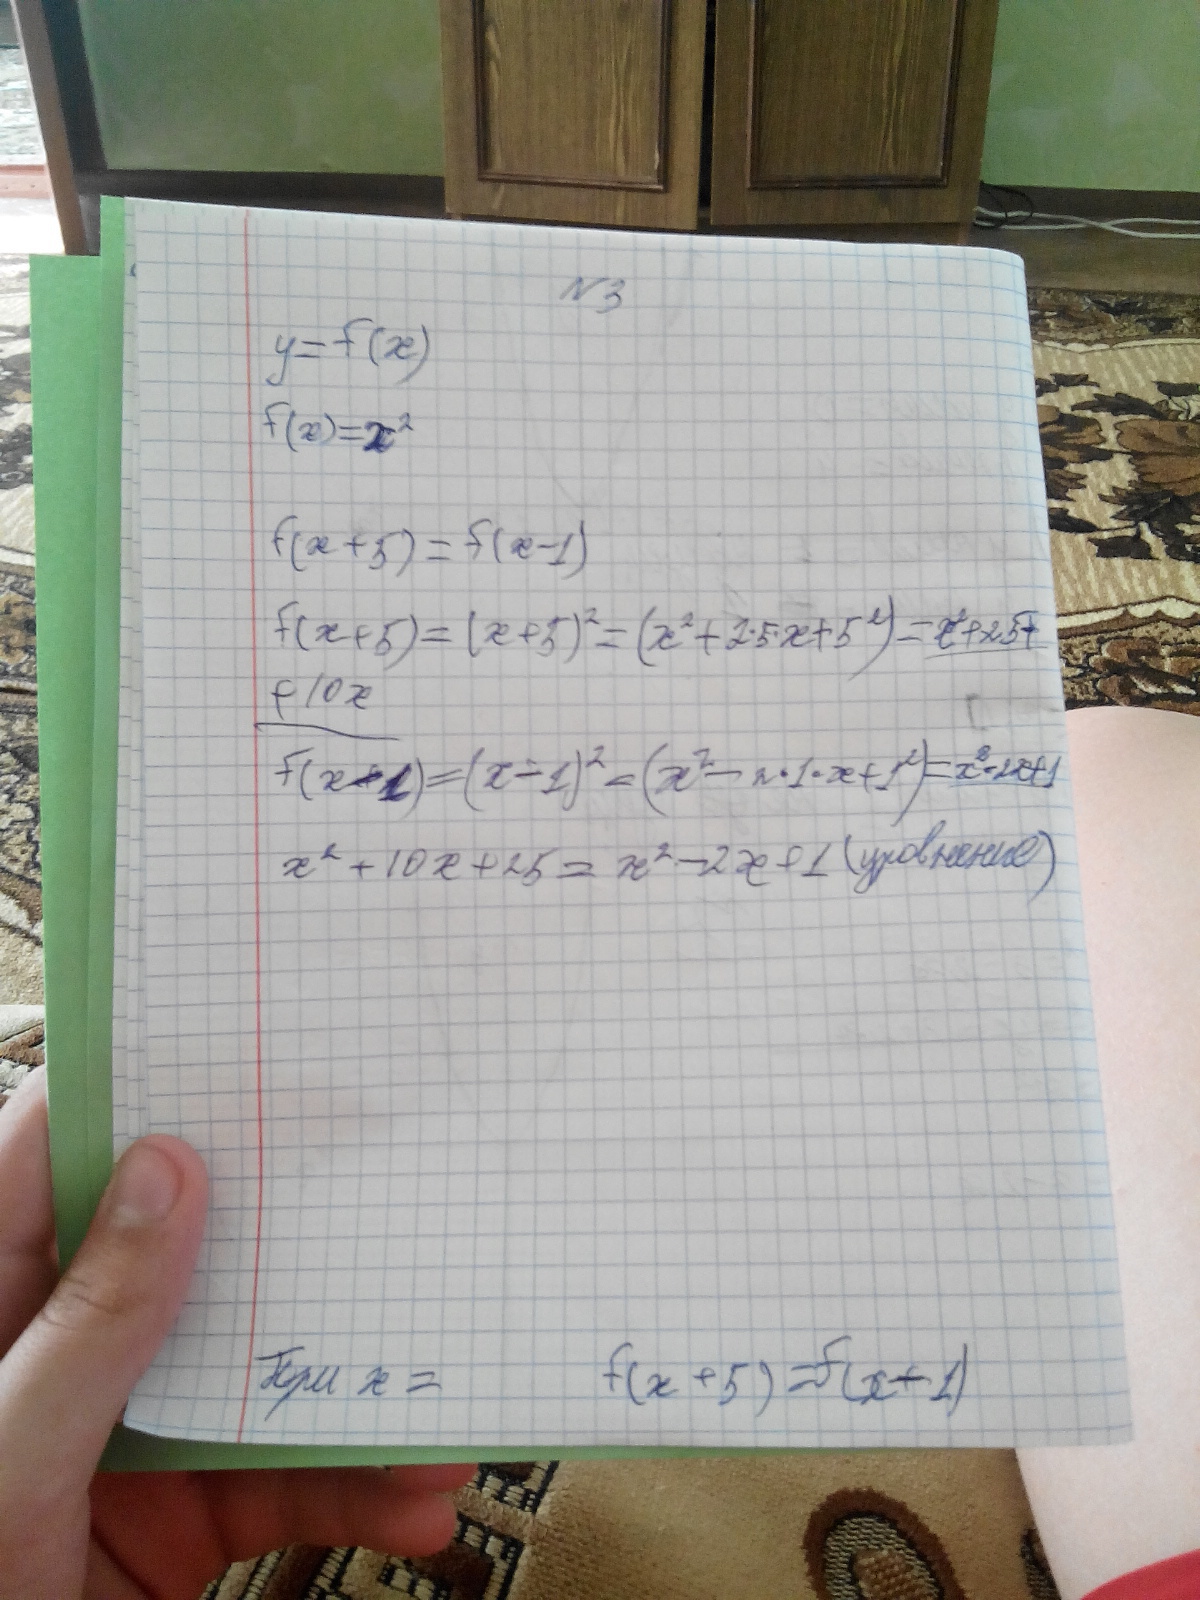 N3
y = f(x)
f(x) = x²
f(x+5) = f(x-1)
f(x+5) = (x+5)² = (x² + 2·5·x + 5²) = x² + 25 +
+ 10x
f(x-1) = (x-1)² = (x² - 2·1·x + 1²) = x² - 2x + 1
x² + 10x + 25 = x² - 2x + 1 (уравнение)
При x = f(x+5) = f(x+1)